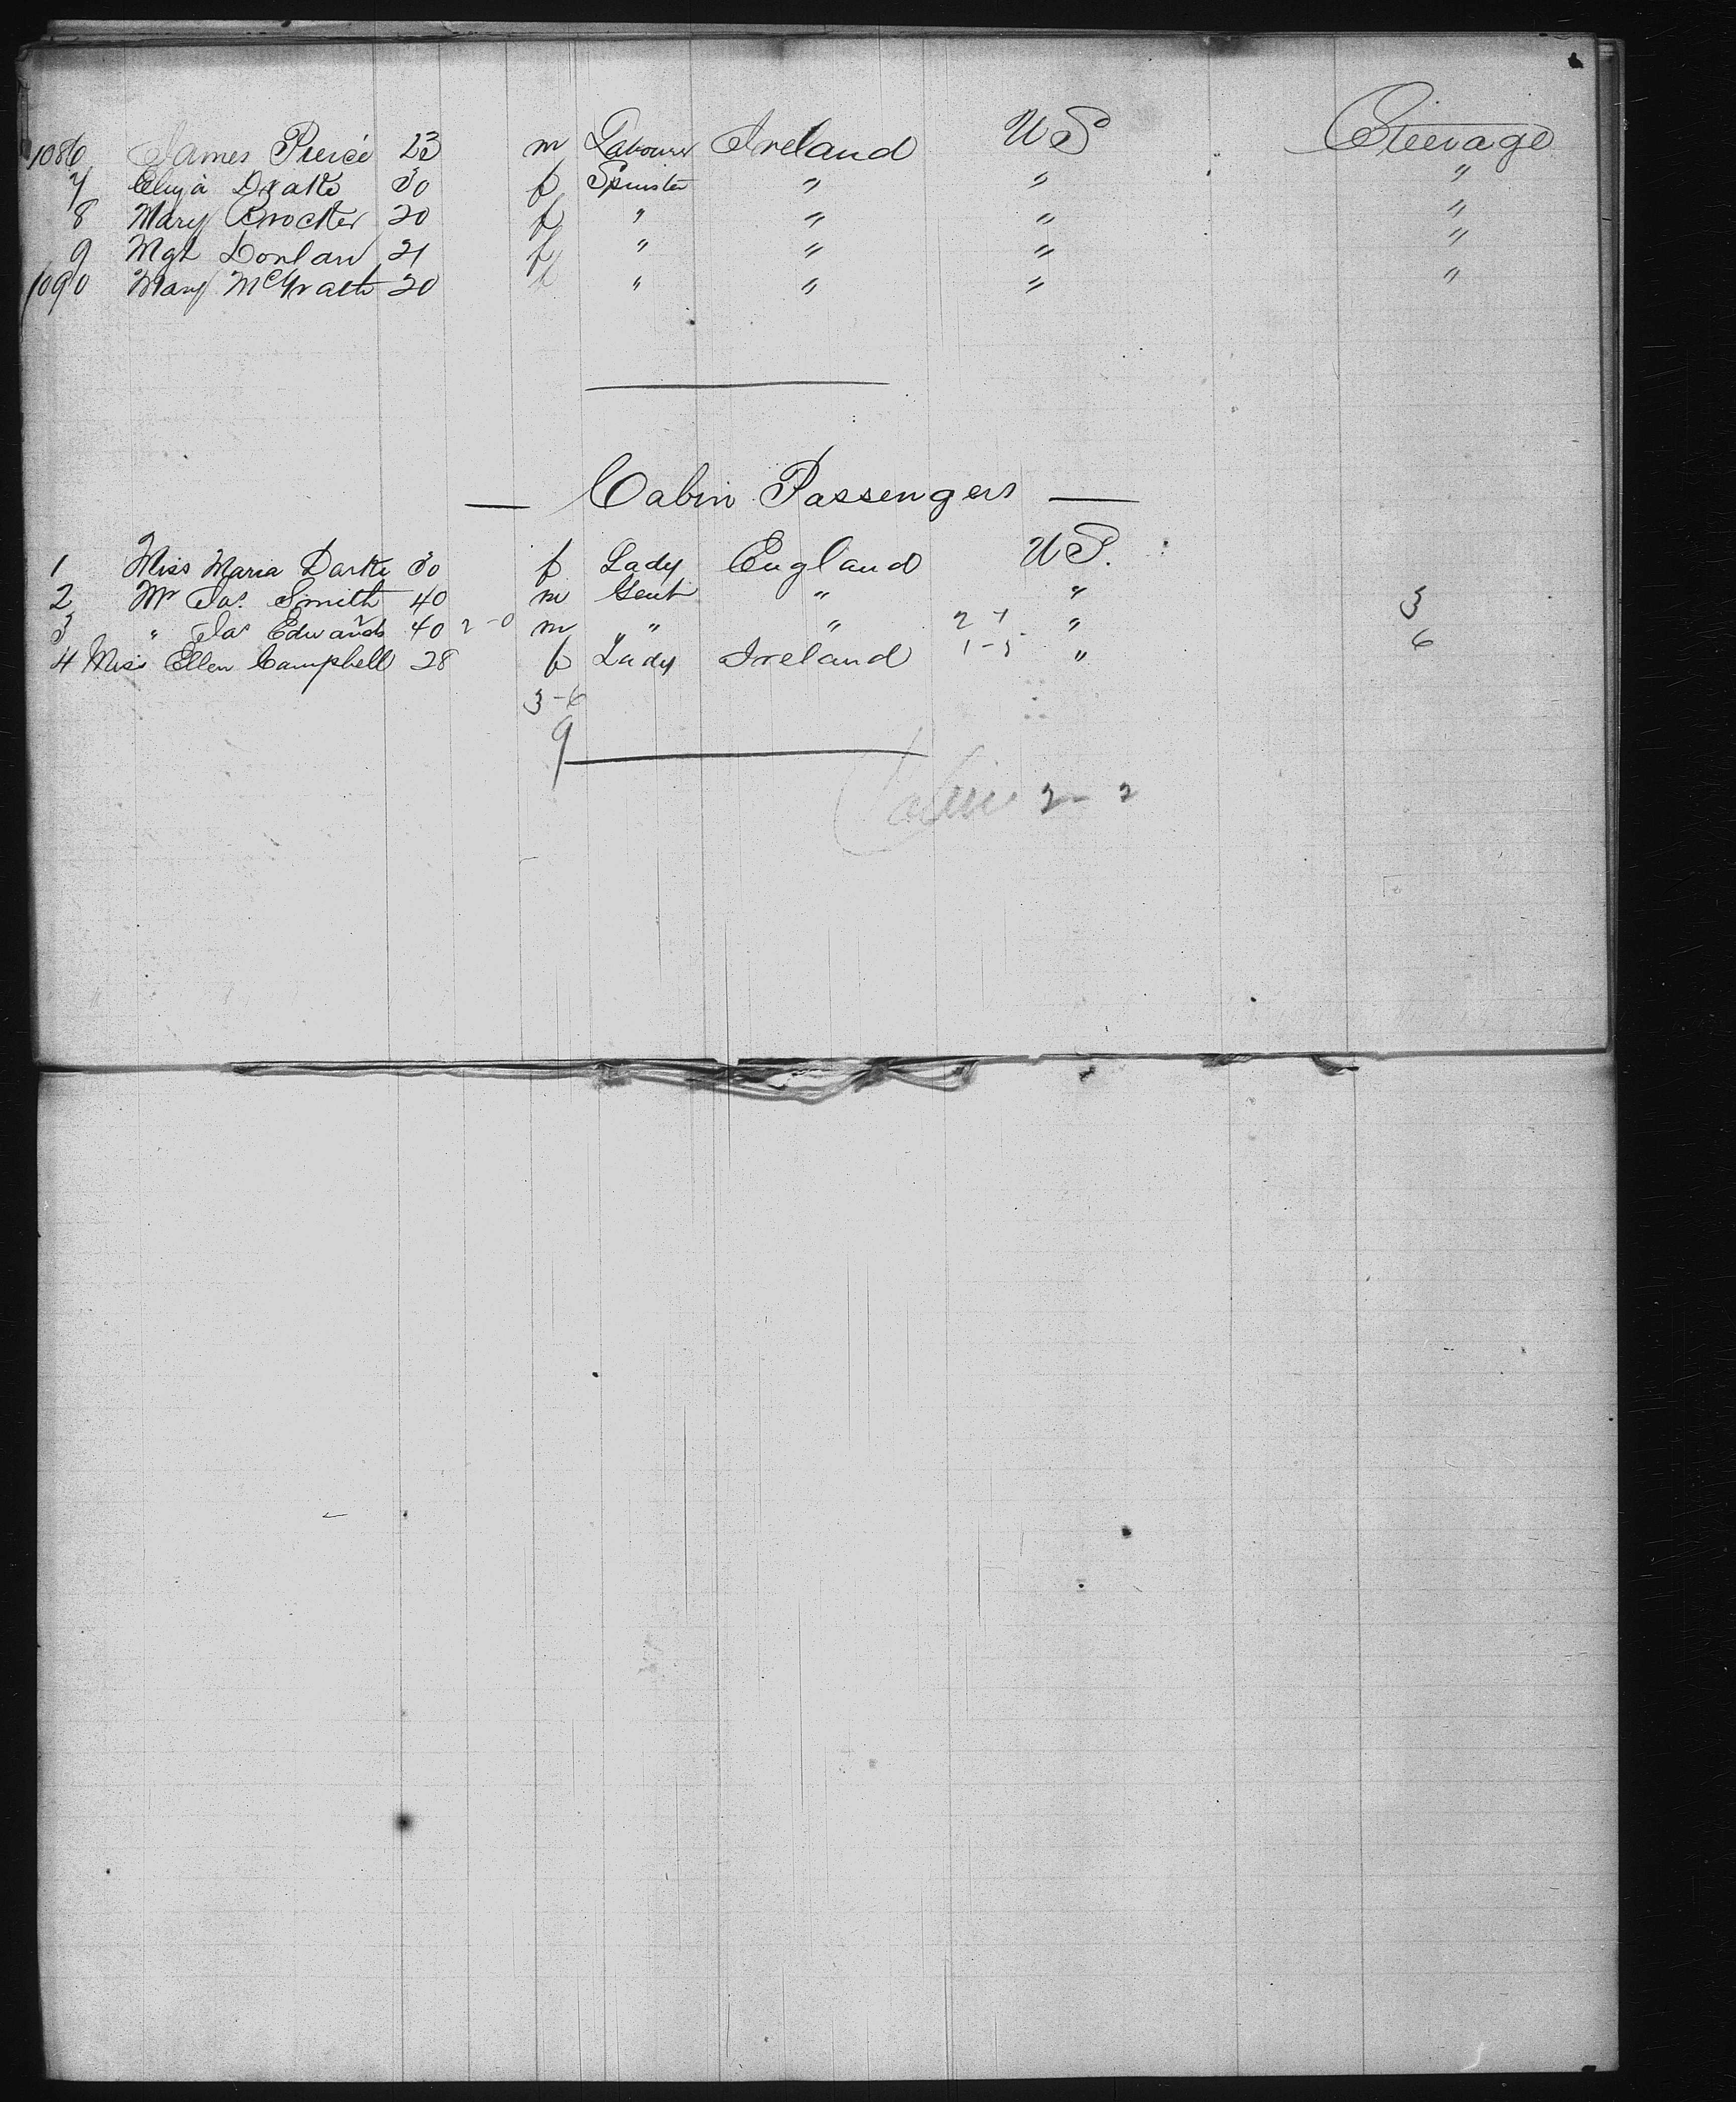 1086 James Pierce 23 m Labourer Ireland US Steerage
7 Eliza Drake 30 f Spinster " " "
8 Mary Knocker 20 f " " " "
9 Mgt Donlan 21 f " " " "
1090 Mary McGrath 20 f " " " "
— Cabin Passengers —
1 Miss Maria Darke 30 f Lady England US.
2 Mr Jas. Smith 40 m Gent " " 3
3 " Jas Edwards 40 2-0 m " " " 2-1 " 6
4 Miss Ellen Campbell 28 f Lady Ireland 1-5 "
3-6
9
Cabin 2-2